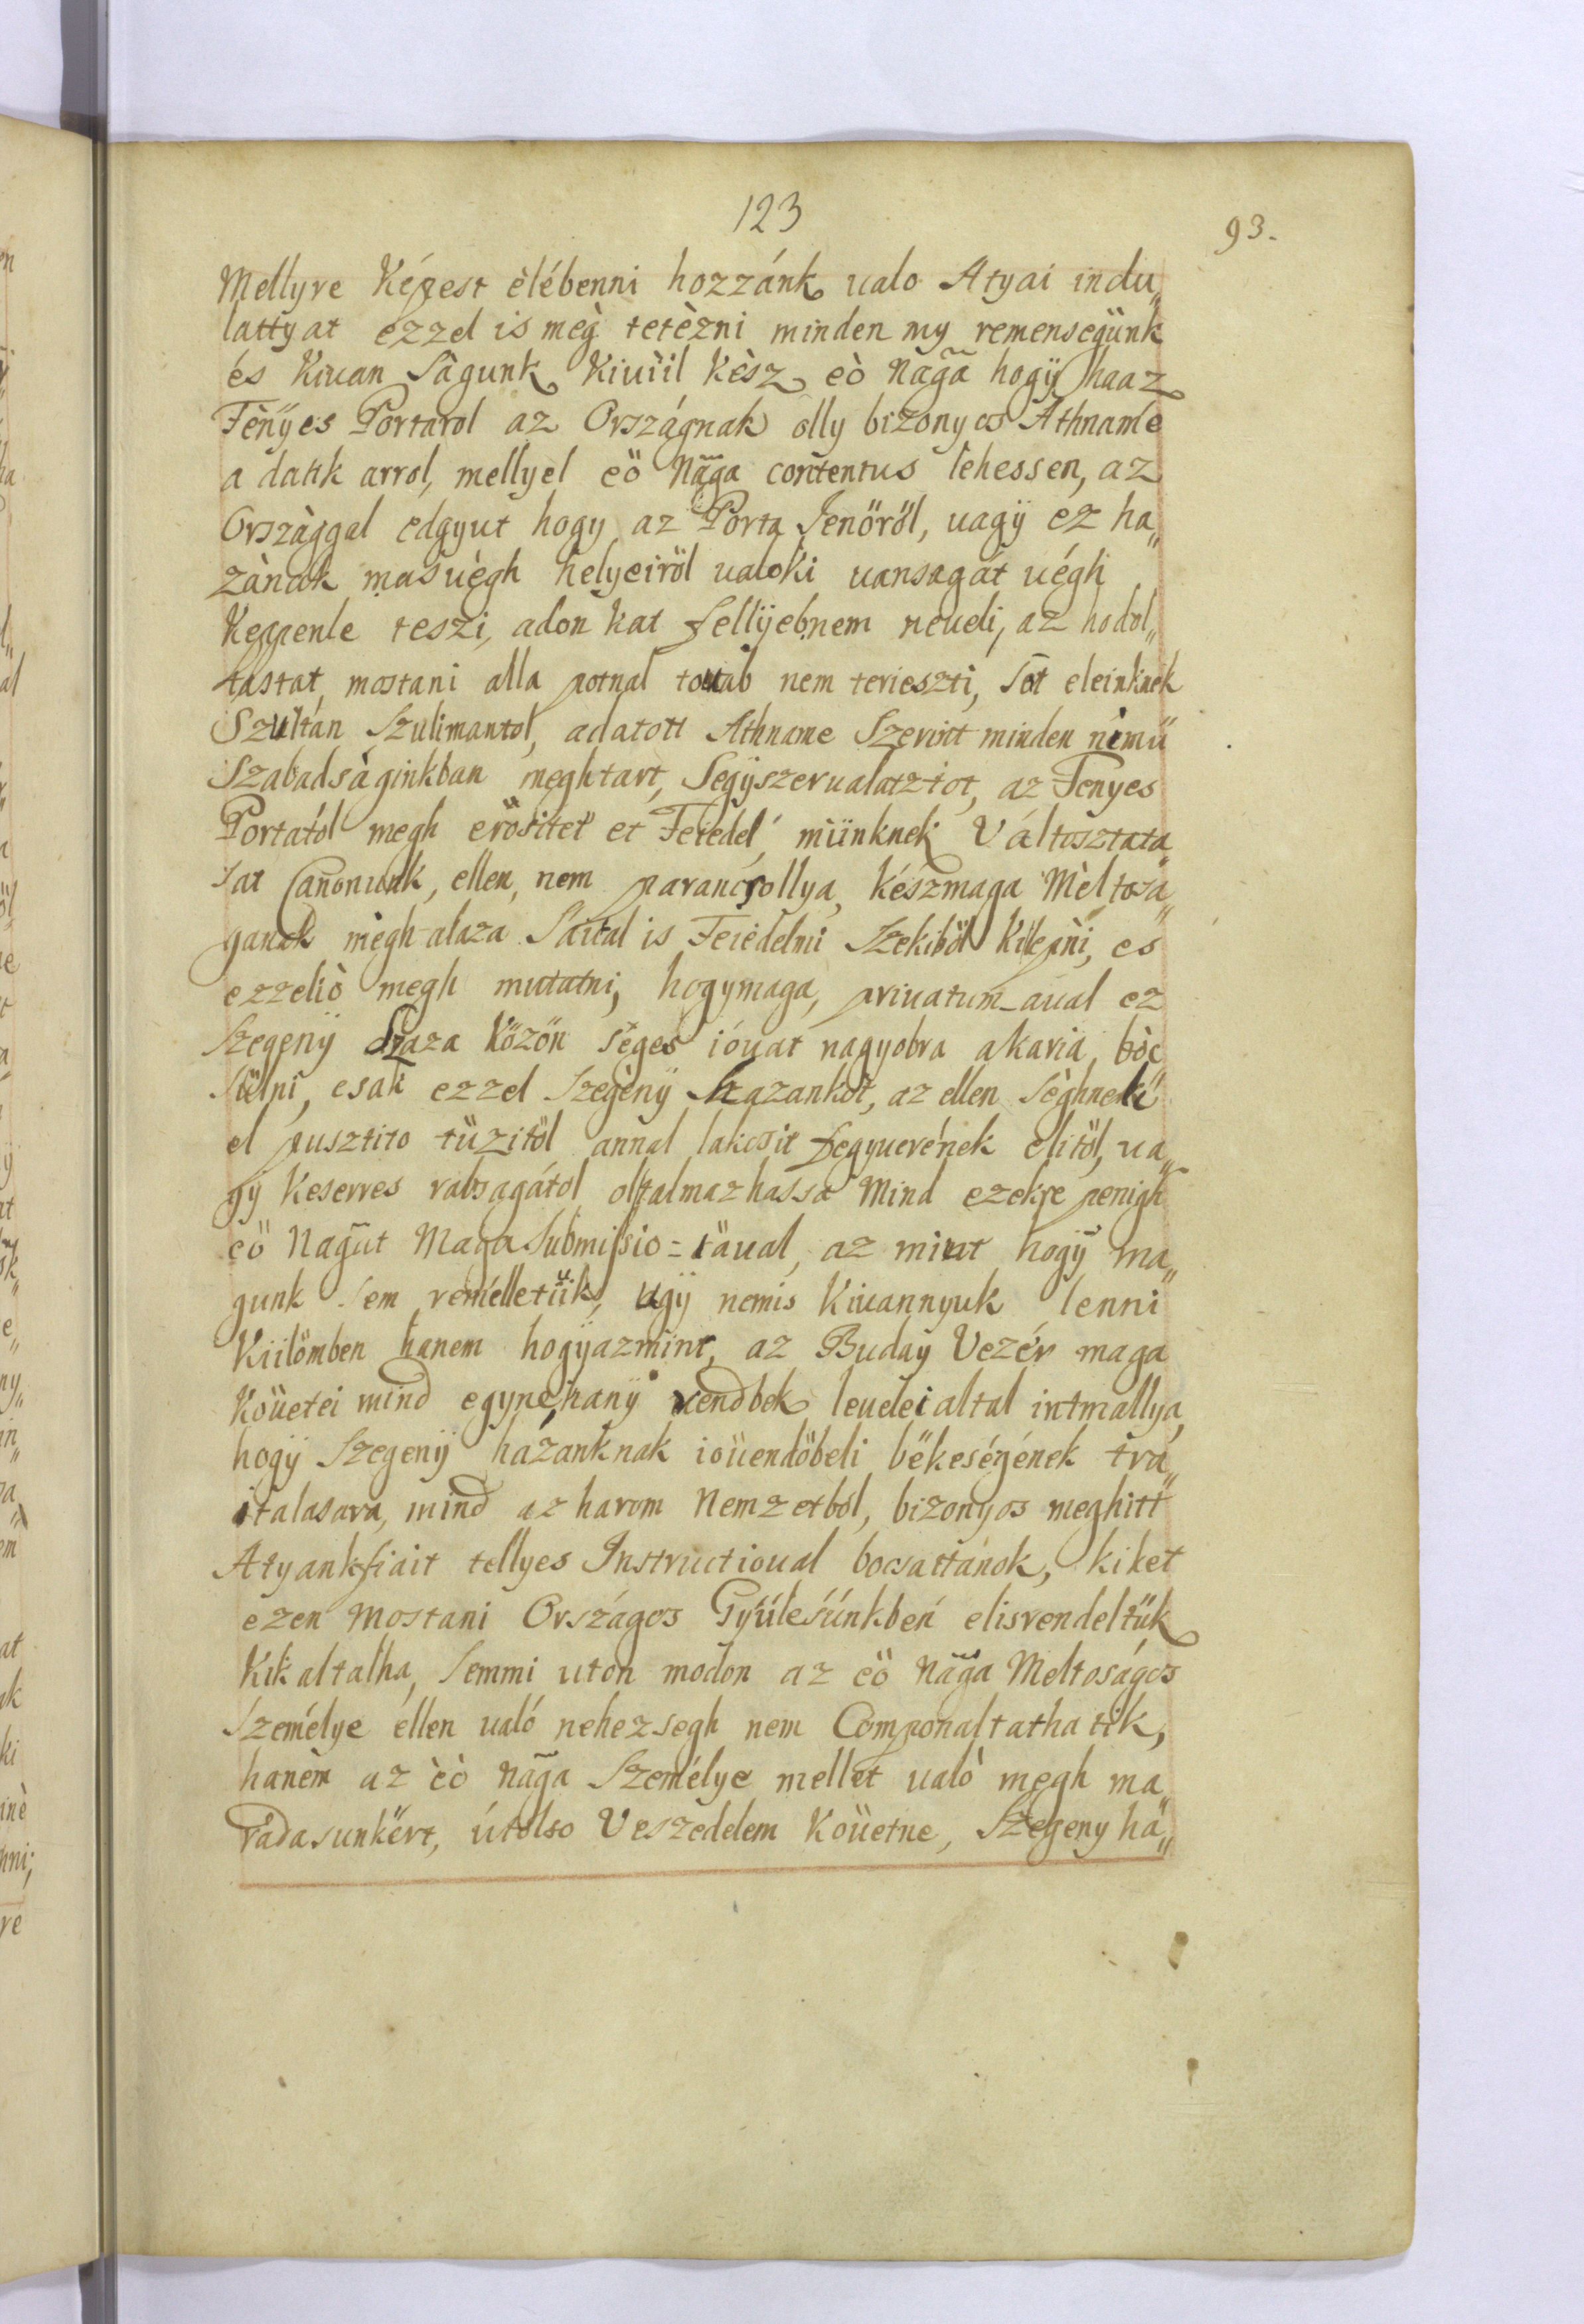 123
93.
Mellyre Képest èlébenni hozzánk ualo Atyai indu„
lattyat ezzel is mèg tetèzni minden my remensegünk
és Kiuan Sàgunk Kiuüil Kèsz eò Nãga hogÿ haaz
Fènÿes Portarol az Országnak olly bizonyos Athname
a datik arrol, mellyel eö Nãga contentus lehessen, az
Orszàggal edgyut hogy az Porta Jenöröl, uagÿ ez ha„
zànak masuègh helyeiröl ualoki uansagát uégh
Keppenle teszi, adon kat fellÿebnem neueli, az hodol„
tastat mostani alla potnal touab nem terieszti, Sót eleinknek
Szultán Szulimantol, adatott Athname Szerint minden nèmü
Szabadsàginkban meghtart, Segÿszerualatztot, az Fenyes
Portatól megh eròsitet et Feiedel, münknek Változtata„
sat Canonunk, ellen, nem parancsollya, készmaga Mèltosa„
ganak mègh alaza Sáual is Feiedelmi Szekiböl Kilepni, es
ezzeliò megh mutatni, hogymaga, priuatum_aual ez
Szegenÿ Haza Közön séges ióuat nagyobra akaria bòc„
sülni, csak ezzel Szegènÿ Hazankot, az ellen Sèghnek
el pusztito tüzitöl annal lakosit fegyuerének elitöl, ua„
gÿ Keserves rabsagátol oltalmazhassa Mind ezekre penigh
eö Nagät Maga Submissio=iäual, az mint hogÿ ma„
gunk sem remélletük, ugÿ nemis Kiuannyuk lenni
Külömben hanem hogÿazmint, az Buday Vezér maga
Köuetei mind egynehanÿ rendbek leuelei altal intmallya,
hogÿ Szegenÿ házanknak iouendöbeli békeségének tra„
ctalasara, mind az harom Nemzetból, bizonyos meghitt
Atyankfiait tellyes Instructioual bocsattánok, kiket
ezen mostani Országos Gyúlésúnkben elisrendeltük
Kik altalha, Semmi uton modon az eö Nãga Meltoságos
Személye ellen ualó nehezsegh nem Componaltathatik,
hanèm az èò Nãga Személye mellet ualò megh ma„
radasunkért, útolso Veszedelem Köuetne, Szegeny ha„